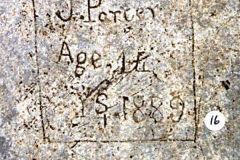 J. Porter
Age. 14
1889
16